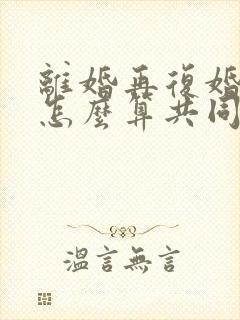 離婚再復婚
怎麼算共同
溫言無言